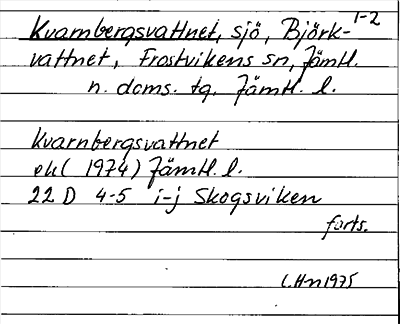 1-2
Kvarnbergsvattnet, sjö, Björk-
vattnet, Frostvikens sn, Jämtl.
n. doms. tg. Jämtl. l.
Kvarnbergsvattnet
ek (1974) Jämtl. l.
22 D 4-5 i-j Skogsviken
forts.
C.Hn 1975